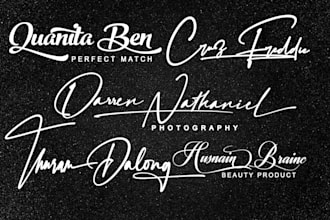 Quanita Ben
PERFECT MATCH
Cruz Freddie
Darren Nathaniel
PHOTOGRAPHY
Thuram Dalong
Husnain Braine
BEAUTY PRODUCT